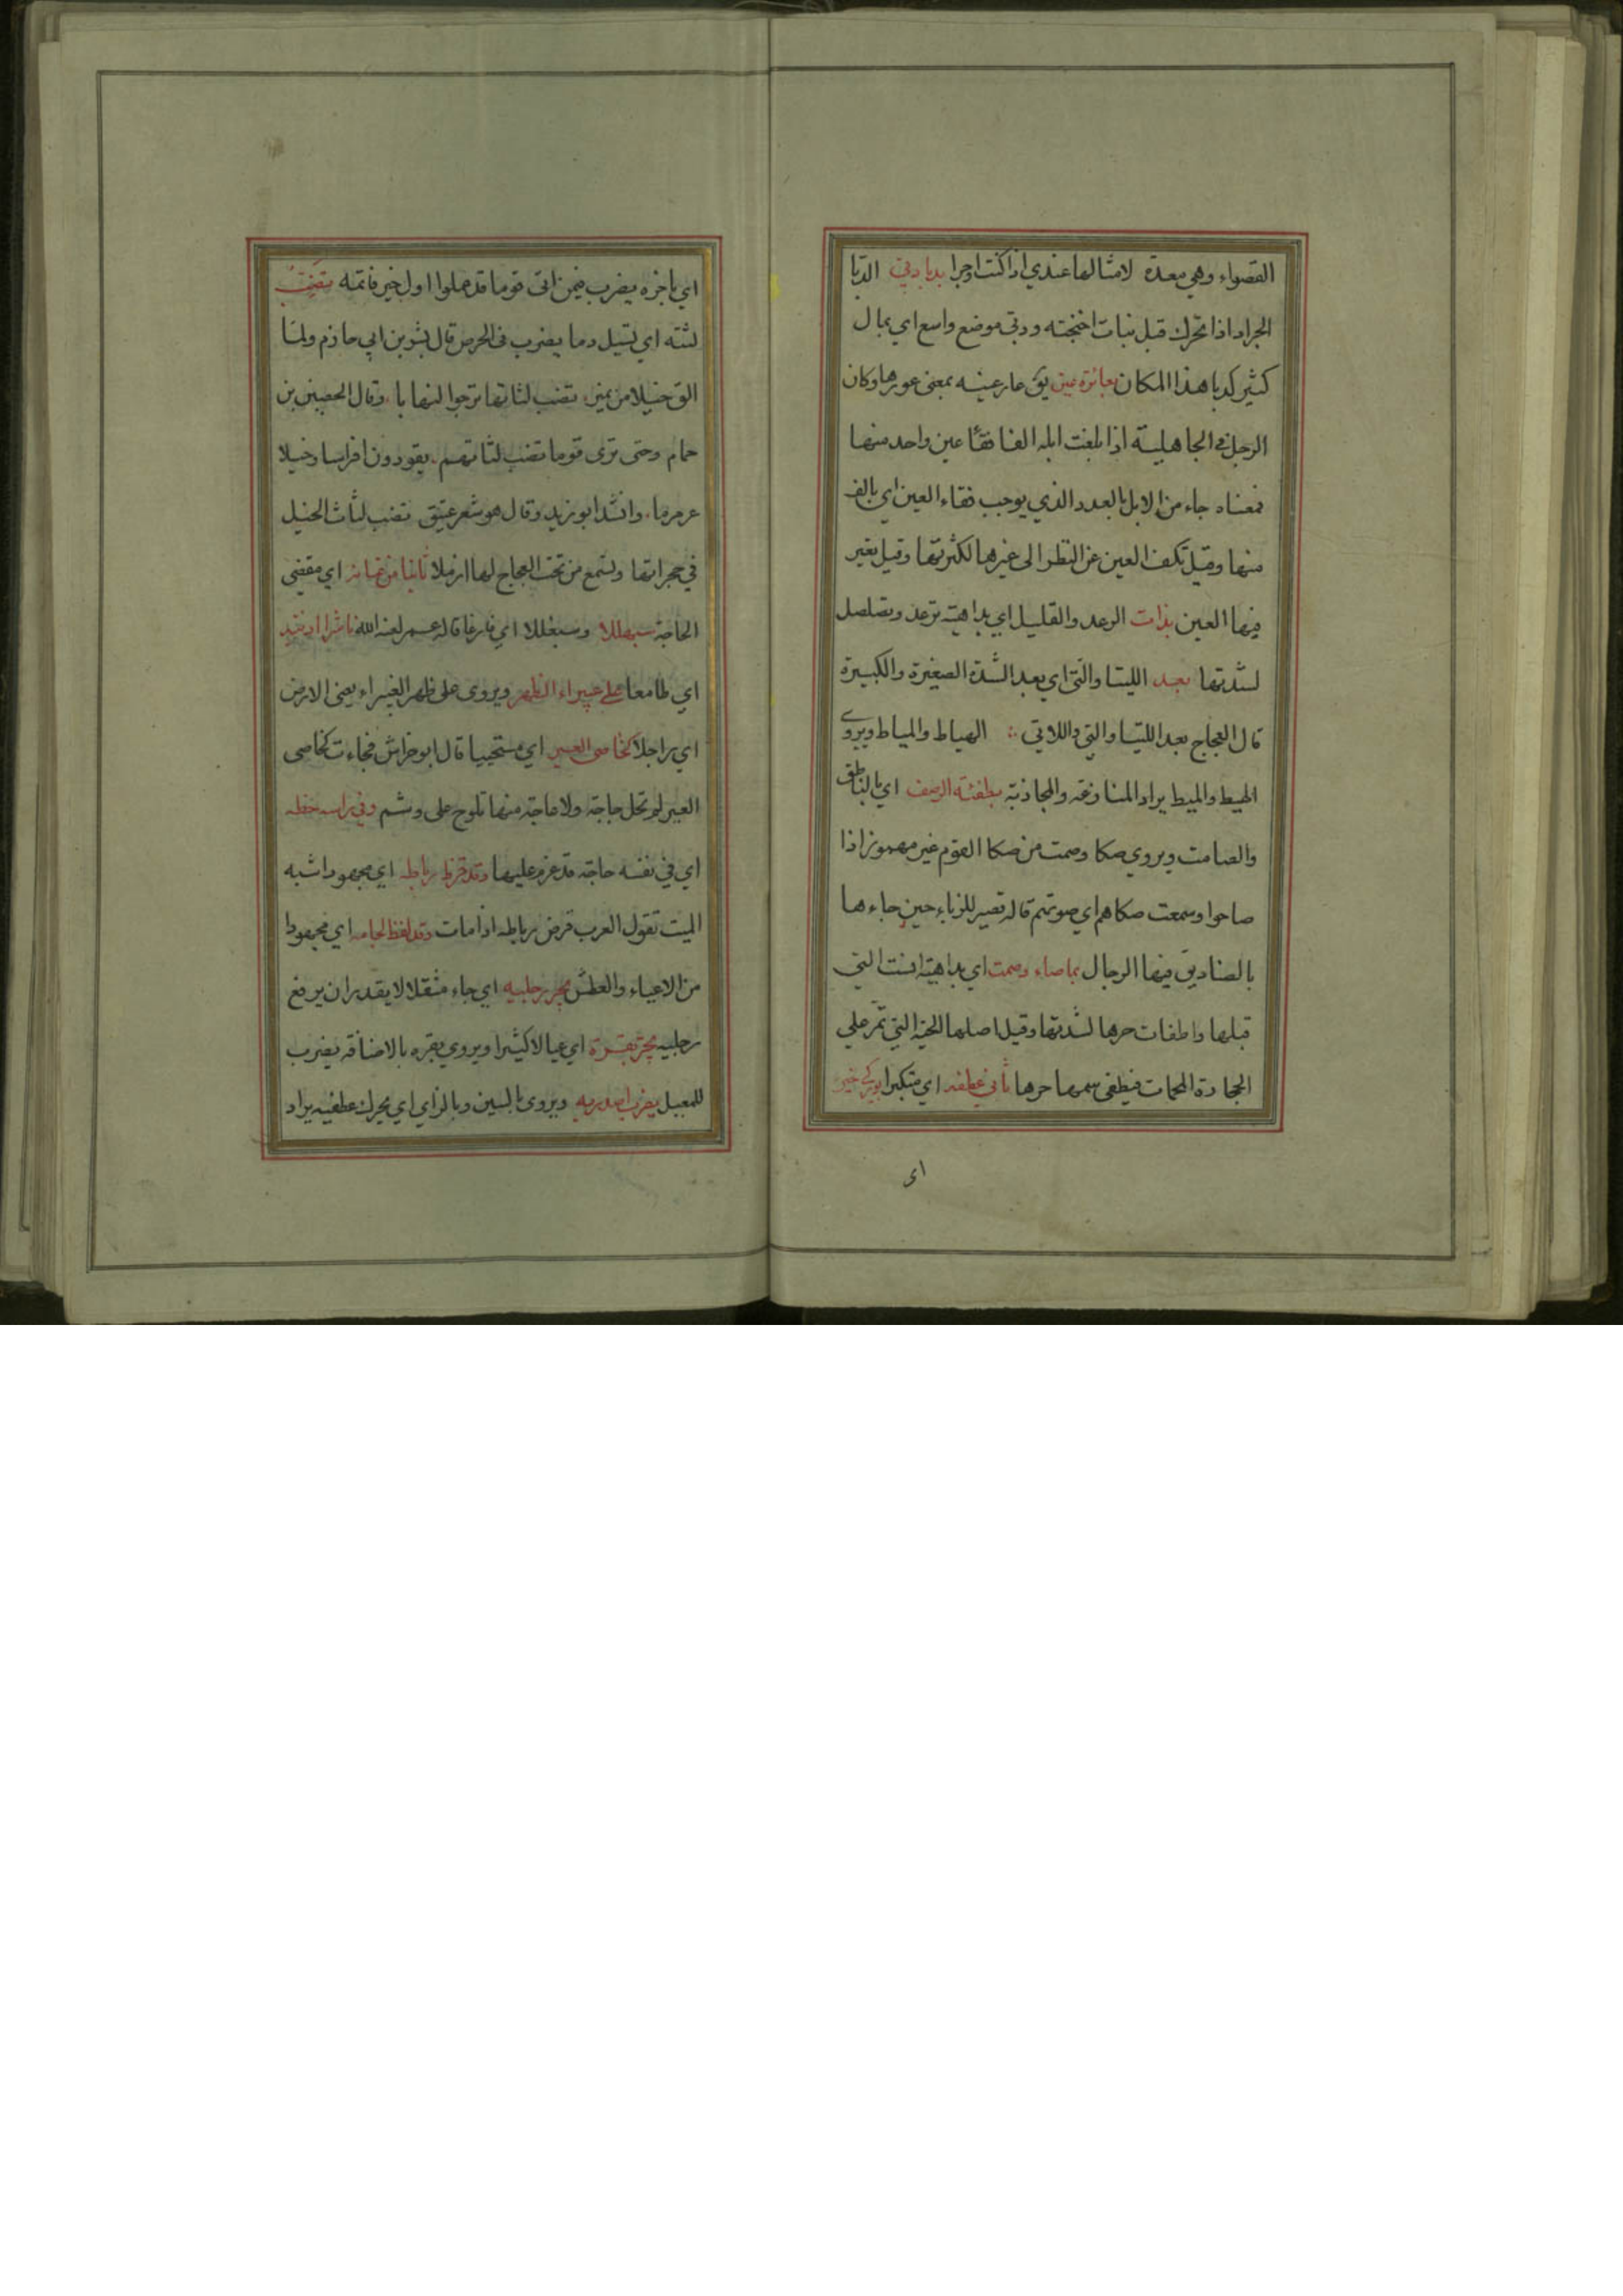 القصواء وهي معدة لامثالها عندي اذا كنت اوجرا بدبا دبي الدبا
الجراد اذا تحرك قبل نبات اجنحته ودبي موضع واسع اي بمال
كثير كدبا هذا المكان بعائرة عين يق عار عينه بمعنى عورها وكان
الرجل في الجاهلية اذا بلغت ابله الفا فقأ عين واحد منها
فمعناه جاء من الابل بالعدد الذي يوجب فقاء العين اي بالف
منها وقيل تكف العين عن النظر الى غيرها لكثرتها وقيل يعير
فيها العين بذات الرعد والقليل اي بداهية ترعد وتصلصل
لشدتها بعد اللتيا والتي اي بعد الشدة الصغيرة والكبيرة
قال العجاج بعد اللتيا والتي واللاتي الهياط والمياط ويروى
الهيط والميط يراد المنازعة والمجاذبة بمطفئة الرضف اي بالناطق
والصامت ويروي صكا وصمت من صكا القوم غير مهموز اذا
صاحوا وسمعت صكاهم اي صوتهم قاله قصير للزباء حين جاءها
بالصناديق فيها الرجال بماصاء وصمت اي بداهية انست التي
قبلها واطفات حرها لشدتها وقيل اصلها الحية التي تمر على
الحجارة المحمات فيطفى سمها حرها ثاني عطفه اي متكبرا بوركي خير
اى
اي باخره يضرب فيمن اتى قوما قد املوا اول خير فاتمه تضب
لثته اي تسيل دما يضرب في الحرص قال بشر بن ابي حازم ولما
الق خيلا من نمير تضب لثاتها ترجوا النهابا وقال الحصين بن
حمام وحتى ترى قوما تضب لثاتهم يقودون افراسا وخيلا
عرمرما وانشد ابو زيد وقال هو شعر عتيق تضب لثاث الخيل
في حجراتها وتسمع من تحت العجاج لها ازملا ثانيا من عنانه اي مقضي
الحاجة سبهللا وسبغللا اي فارغا قاله عمر لعنه الله ناشرا اذنيه
اي طامعا على غبيراء الظهر ويروى على ظهر الغبيراء يعنى الارض
اي راجلا كخاصى العير اي مستحييا قال ابو خراش فجاءت كخاصى
العير لم تحل حاجة ولا عاجة منها تلوح على وشم وفي راسه خطه
اي في نفسه حاجة قد عزم عليها وقد قرظ رباطه اي مجهودا شبه
الميت تقول العرب قرض رباطه اذا مات وقد لفظ لجامه اي مجهودا
من الاعياء والعطش يجر رجليه اي جاء مثقلا لا يقدر ان يرفع
رجليه يجر بقرة اي عيالا كثيرا ويروي بقره بالاضافة يضرب
للمعيل يضرب اصدريه ويروى بالسين وبالزاي اي يحرك عطفيه يراد